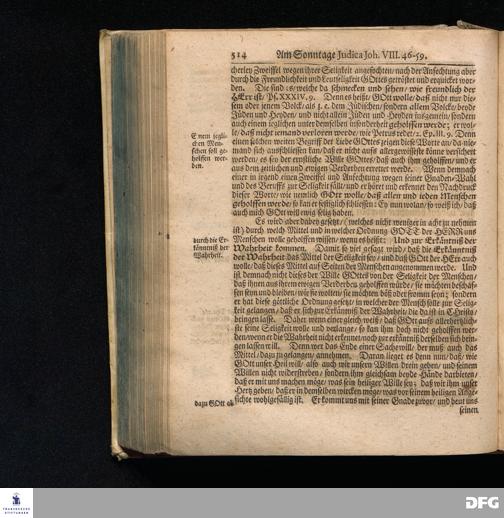 514 Am Sonntage Judica Joh. VIII. 46-59.
cherley Zweiffel wegen ihrer Seligkeit angefochten/ nach der Anfechtung aber
durch die Freundlichkeit und Leutseligkeit GOttes getröstet und erquicket wor-
den. Die sind es/ welche da schmecken und sehen/ wie freundlich der
HErr ist/ Ps. XXXIV. 9. Denn es heißt/ GOtt wolle/ daß nicht nur die-
sem oder jenem Volck/ als z. e. dem Jüdischen/ sondern allem Volcke/ beyde
Jüden und Heyden/ und nicht allein Jüden und Heyden insgemein/ sondern
auch einem jeglichen unter demselben insonderheit geholffen werde; er wol-
le/ daß nicht iemand verloren werde/ wie Petrus redet/ 2. Ep. III. 9. Denn
einen solchen weiten Begriff der Liebe GOttes zeigen diese Worte an/ da nie-
mand sich ausschliessen kan/ daß er nicht aufs allergewisseste könne versichert
werden/ es sey der ernstliche Wille GOttes/ daß auch ihm geholffen/ und er
aus dem zeitlichen und ewigen Verderben errettet werde. Wenn demnach
einer in irgend einen Zweiffel und Anfechtung wegen seiner Gnaden-Wahl
und des Beruffs zur Seligkeit fällt/ und er höret und erkennet den Nachdruck
dieser Worte/ wie nemlich GOtt wolle/ daß allen und ieden Menschen
geholffen werde/ so kan er festiglich schliessen: Ey nun wolan/ so weiß ich/ daß
auch mich GOtt will ewig selig haben.
Es wird aber dabey gesetzt/ (welches nicht weniger in acht zu nehmen
ist) durch welch Mittel und in welcher Ordnung GOTT der HERR uns
Menschen wolle geholffen wissen/ wenn es heißt: Und zur Erkäntniß der
Wahrheit kommen. Damit so viel gesagt wird/ daß die Erkäntniß
der Wahrheit das Mittel der Seligkeit sey/ und daß GOtt der HErr auch
wolle/ daß dieses Mittel auf Seiten der Menschen angenommen werde. Und
ist demnach nicht dieses der Wille GOttes von der Seligkeit der Menschen/
daß ihnen aus ihrem ewigen Verderben geholffen würde/ sie möchten beschaf-
fen seyn und bleiben/ wie sie wolten/ sie möchten böß oder fromm seyn; sondern
er hat diese göttliche Ordnung gesetzt/ in welcher der Mensch solle zur Selig-
keit gelangen/ daß er sich zur Erkäntniß der Wahrheit/ die da ist in Christo/
bringen lasse. Daher wenn einer gleich weiß/ daß GOtt aufs allerhertzlich-
ste seine Seligkeit wolle und verlange/ so kan ihm doch nicht geholffen wer-
den/ wenn er die Wahrheit nicht erkennet/ noch zur erkäntniß derselben sich brin-
gen lassen will. Denn wer das Ende einer Sache will/ der muß auch das
Mittel/ dazu zu gelangen/ annehmen. Daran lieget es denn nun/ daß/ wie
GOtt unser Heil will/ also auch wir unsern Willen drein geben/ und seinem
Willen nicht widerstreben/ sondern ihm gleichsam beyde Hände darbieten/
daß er mit uns machen möge/ was sein heiliger Wille sey; daß wir ihm unser
Hertz geben/ daß er in demselben wircken möge/ was vor seinem heiligen Ange-
sichte wohlgefällig ist. Er kommt uns mit seiner Gnade zuvor/ und beut uns
seinen
Einem jegli-
chen Men-
schen soll ge-
holffen wer-
den.
durch die Er-
käntniß der
Wahrheit.
dazu GOtt
FRANCKESCHE
STIFTUNGEN
DFG